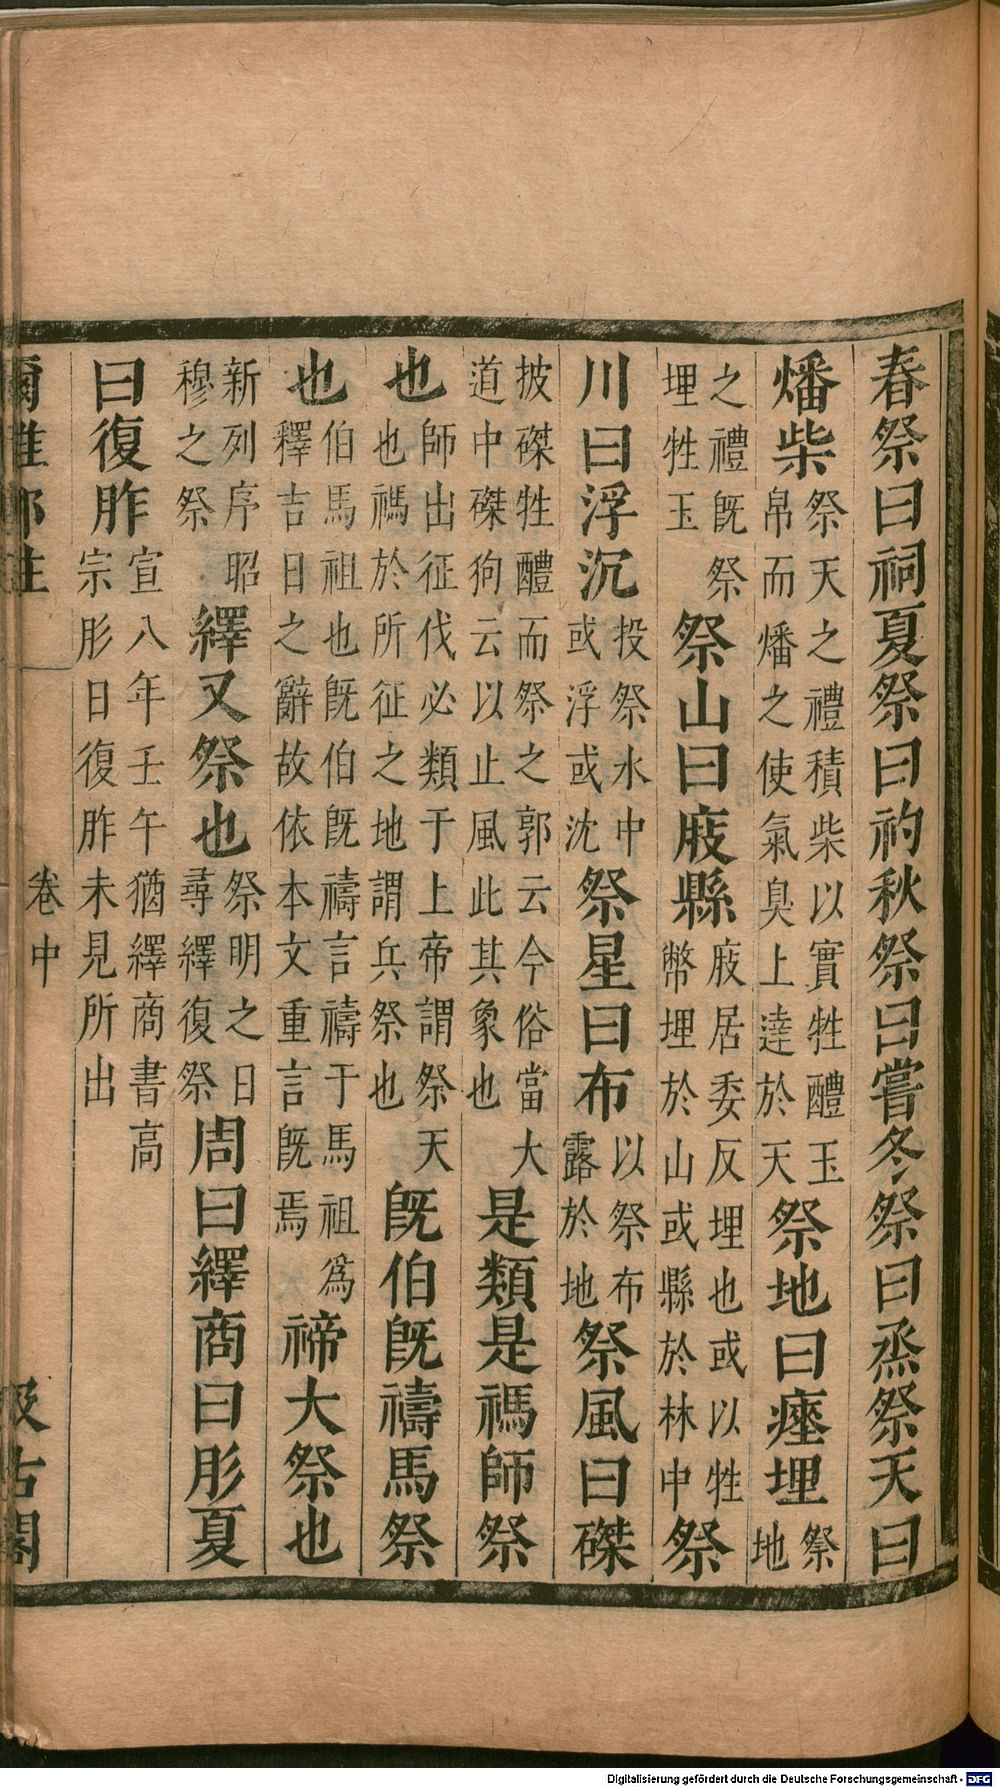 春祭曰祠夏祭曰礿秋祭曰嘗冬祭曰烝祭天曰
燔柴祭天之禮積柴以實牲醴玉帛而燔之使氣臭上逹於天祭地曰瘞埋祭地
之禮旣祭埋牲玉祭山曰庪縣庪居委反埋也或以牲幣埋於山或縣於林中祭
川曰浮沉投祭水中或浮或沈祭星曰布以祭布露於地祭風曰磔
披磔牲醴而祭之郭云今俗當大道中磔狗云以止風此其象也是類是禡師祭
也師出征伐必類于上帝謂祭天也禡於所征之地謂兵祭也旣伯旣禱馬祭
也伯馬祖也旣伯旣禱言禱于馬祖爲釋吉日之辭故依本文重言旣焉禘大祭也
新列序昭穆之祭繹又祭也祭明之日尋繹復祭周曰繹商曰肜夏
曰復胙宣八年壬午猶繹商書高宗肜日復胙未見所出
爾雅郑注 卷中 汲古閣
Digitalisierung gefördert durch die Deutsche Forschungsgemeinschaft - DFG